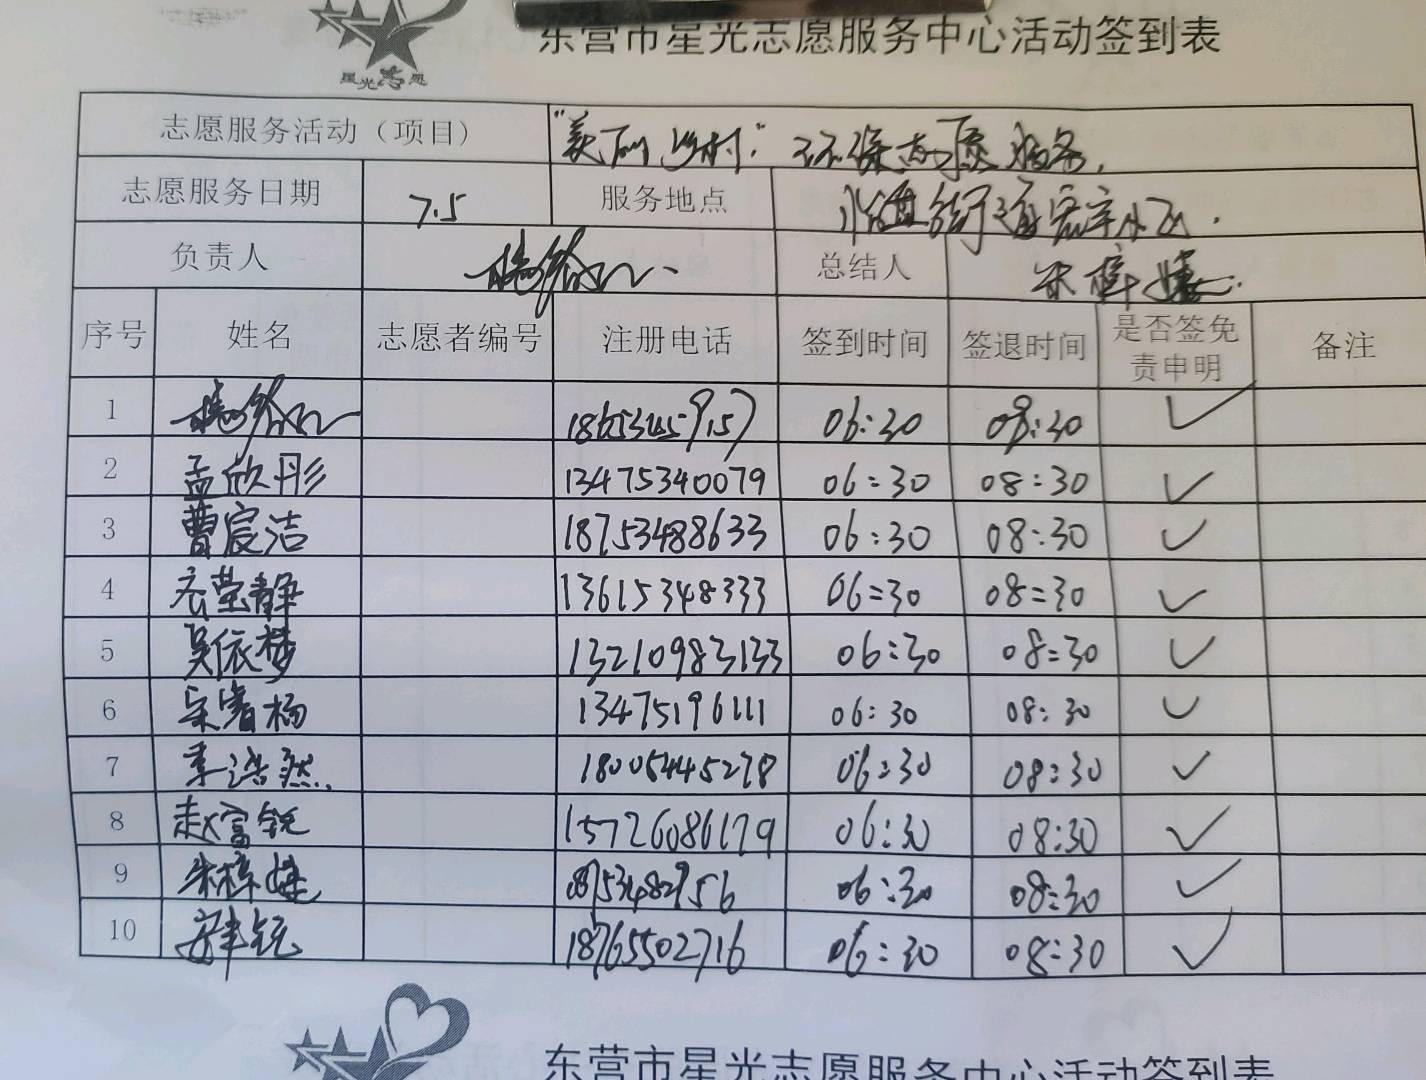 东营市星光志愿服务中心活动签到表
星光志愿
志愿服务活动（项目） "美丽乡村"环保志愿服务.
志愿服务日期 7.5 服务地点 街道
负责人 总结人 朱梓
序号 姓名 志愿者编号 注册电话 签到时间 签退时间 是否签免责申明 备注
1 06:30 08:30 ✓
2 孟欣彤 13475340079 06:30 08:30 ✓
3 曹宸洁 18753488633 06:30 08:30 ✓
4 衣莹静 13615348333 06:30 08:30 ✓
5 吴依梦 13210983133 06:30 08:30 ✓
6 宋睿杨 13475196111 06:30 08:30 ✓
7 季浩然 18005445278 06:30 08:30 ✓
8 赵富锐 15726086179 06:30 08:30 ✓
9 朱梓 06:30 08:30 ✓
10 18765502716 06:30 08:30 ✓
东营市星光志愿服务中心活动签到表